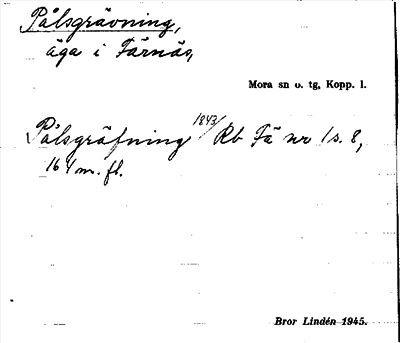 Pålsgrävning,
äga i Färnäs,
Mora sn o. tg, Kopp. l.
Pålsgräfning 1843/ Rb Fä nr 1 s. 8,
164 m. fl.
Bror Lindén 1945.